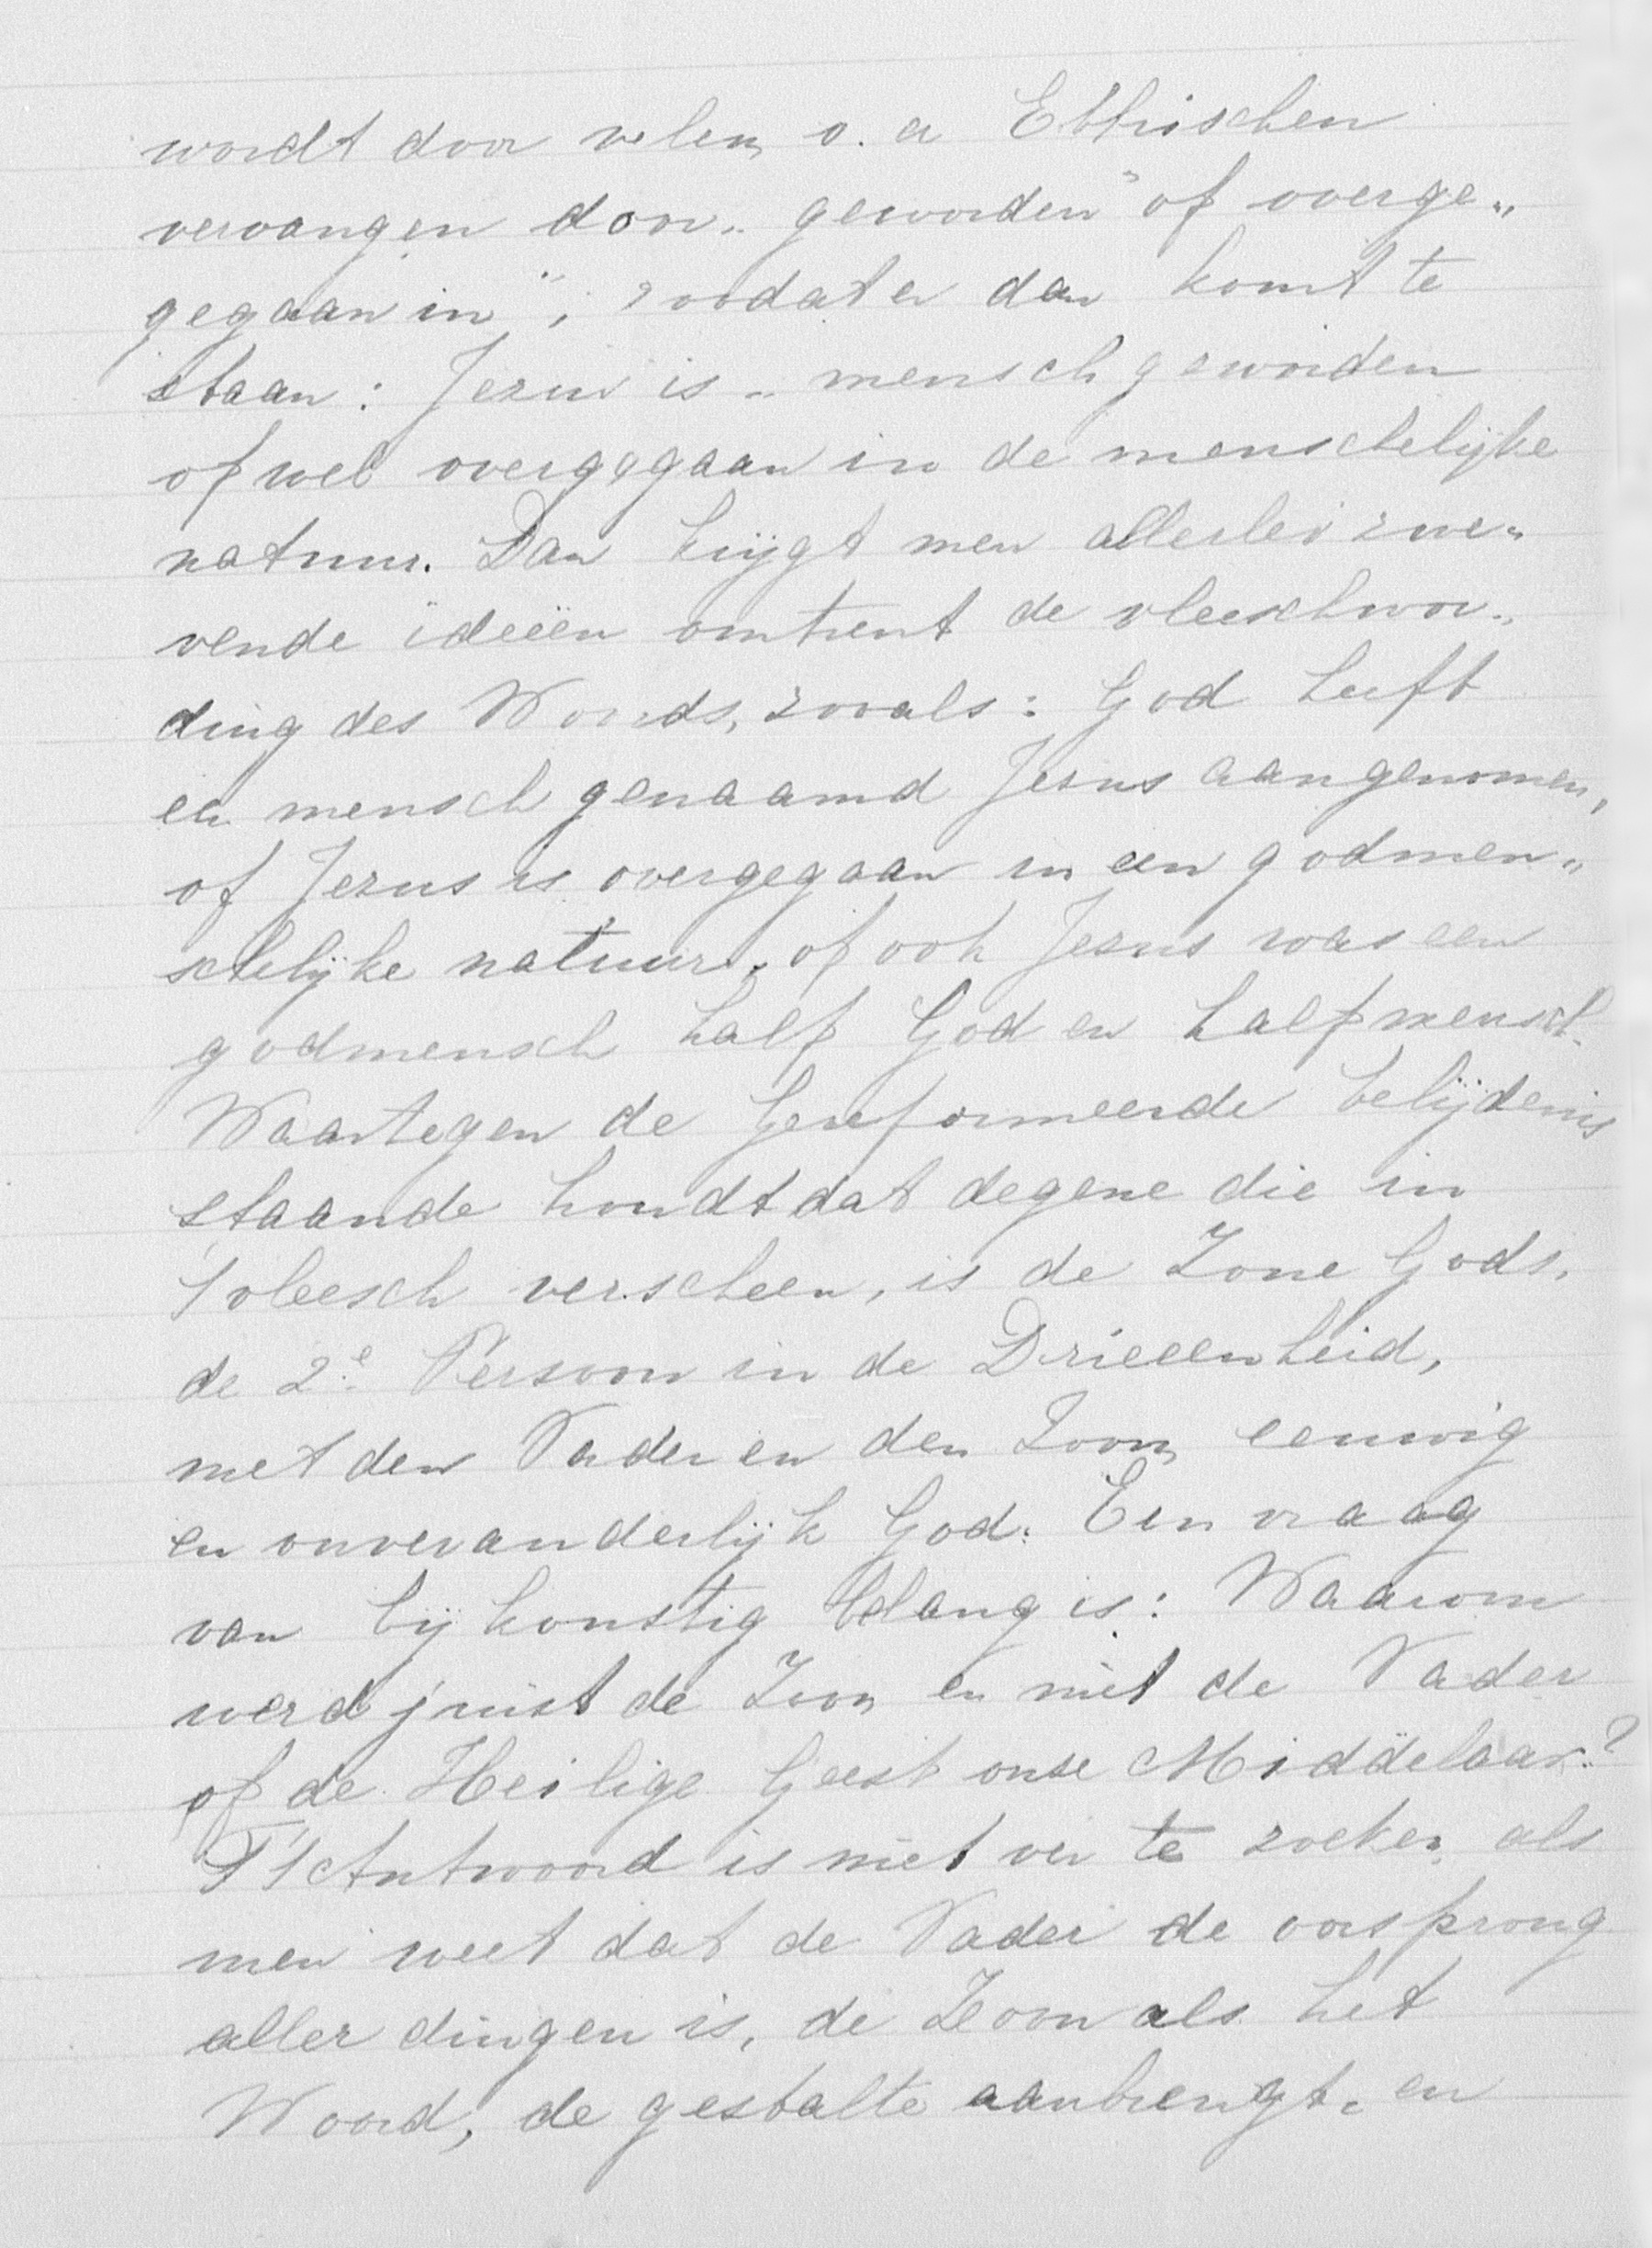 wordt door velen o. a Ethischen
vervangen door „ geworden" of overge„
gegaan in", zoodat er dan komt te
staan: Jezus is „ mensch geworden
ofwel overgegaan in de menschelijke
natuur. Dan krijgt men allerlei zwe„
vende ideeën omtrent de vleeschwor„
ding des Woords, zooals: God heeft
een mensch genaamd Jezus aangenomen,
of Jezus is overgegaan in een godmen„
schelijke natuur, of ook Jezus was een
godmensch half God en half mensch.
Waartegen de Gereformeerde belijdenis
staande houdt dat degene die in
't vleesch verscheen, is de Zone Gods,
de 2e Persoon in de Drieeenheid,
met den Vader en den Zoon eeuwig
en onveranderlijk God. Een vraag
van bijkomstig belang is: Waarom
werd juist de Zoon en niet de Vader
of de Heilige Geest onze Middelaar?
'T Antwoord is niet ver te zoeken als
men weet dat de Vader de oorsprong
aller dingen is, de Zoon als het
Woord, de gestalte aanbrengt, en